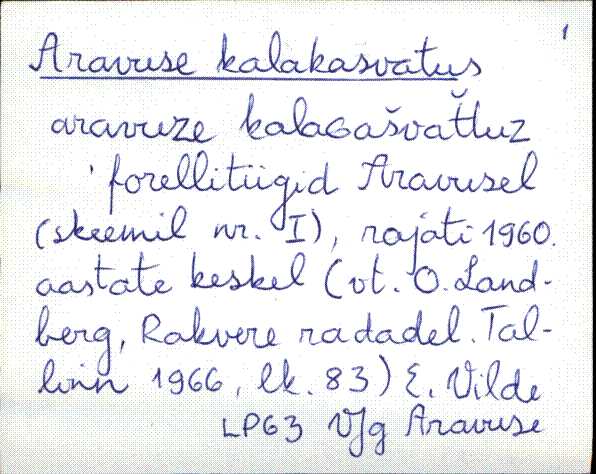 1
Aravuse kalakasvatus
aravuze kalaGašvat̆t̆uz
'forellitiigid Aravusel
(skeemil nr. I), rajati 1960.
aastate keskel (vt. O. Land-
berg, Rakvere radadel. Tal-
linn 1966, lk. 83) E. Vilde
LP63 VJg Aravuse